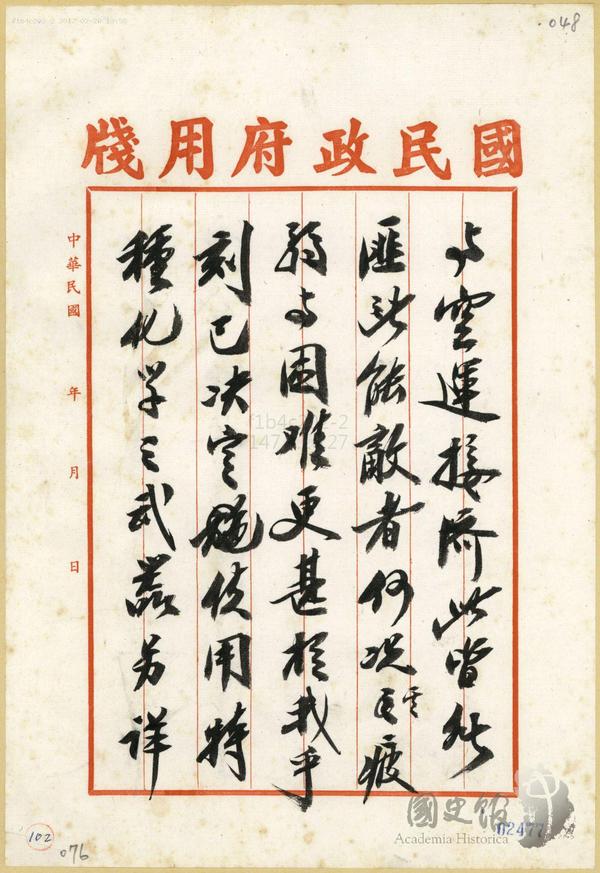 048
國民政府用牋
与空運接濟此皆非
匪所能敵者何况其疲
弱与困难更甚於我乎
刻已决定使用特
種化学之武器另详
中華民國 年 月 日
102
076
國史館
Academia Historica
02477